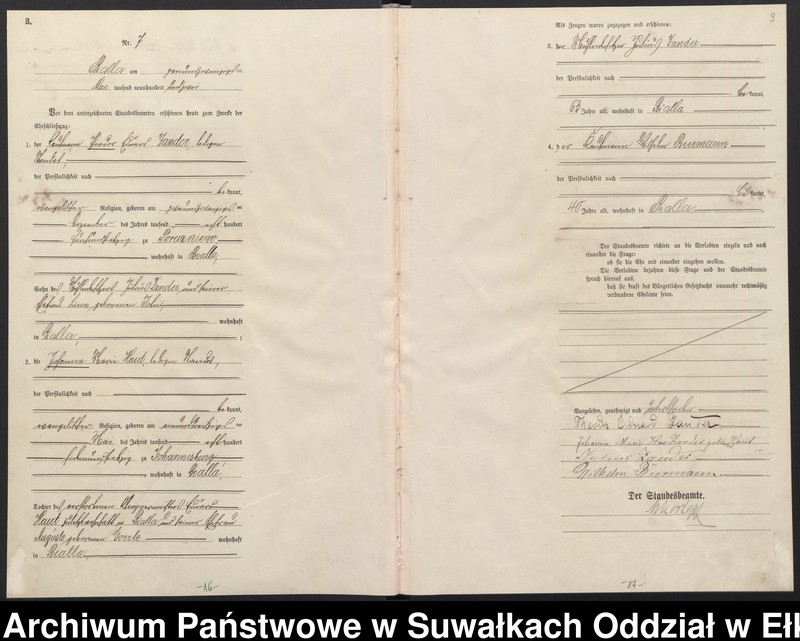 B.
Nr. 7
Bialla am
Mai tausend neunhundert und zwei
Vor dem unterzeichneten Standesbeamten erschienen heute zum Zwecke der
Eheschließung:
1. der Kaufmann Theodor Eduard Zander, ledigen
Standes,
der Persönlichkeit nach
be kannt,
evangelischer Religion, geboren am
Dezember des Jahres tausend acht hundert
zu
wohnhaft in Bialla,
Sohn des Mühlenbesitzers Julius Zander und seiner
Ehefrau geborenen
wohnhaft
in Bialla ;
2. die Johanna Marie Haut, ledigen Standes,
der Persönlichkeit nach
be kannt,
evangelischer Religion, geboren am
Mai des Jahres tausend acht hundert
zu Johannesburg
, wohnhaft in Bialla,
Tochter des verstorbenen Eduard
Haut, zuletzt wohnhaft in Bialla und seiner Ehefrau
Auguste, geborenen wohnhaft
in Bialla
-16-
9
Als Zeugen waren zugezogen und erschienen:
3. der Mühlenbesitzer Julius Zander
der Persönlichkeit nach
be kannt,
63 Jahre alt, wohnhaft in Bialla
4. der Kaufmann Wilhelm Biermann
der Persönlichkeit nach
be kannt,
40 Jahre alt, wohnhaft in Bialla
Der Standesbeamte richtete an die Verlobten einzeln und nach
einander die Frage:
ob sie die Ehe mit einander eingehen wollen.
Die Verlobten bejahten diese Frage und der Standesbeamte
sprach hierauf aus,
daß sie kraft des Bürgerlichen Gesetzbuchs nunmehr rechtmäßig
verbundene Eheleute seien.
Vorgelesen, genehmigt und unterschrieben
Theodor Eduard Zander
Johanna Marie Zander geb. Haut
Julius Zander
Wilhelm Biermann
Der Standesbeamte.
-17-
Archiwum Państwowe w Suwałkach Oddział w Eł